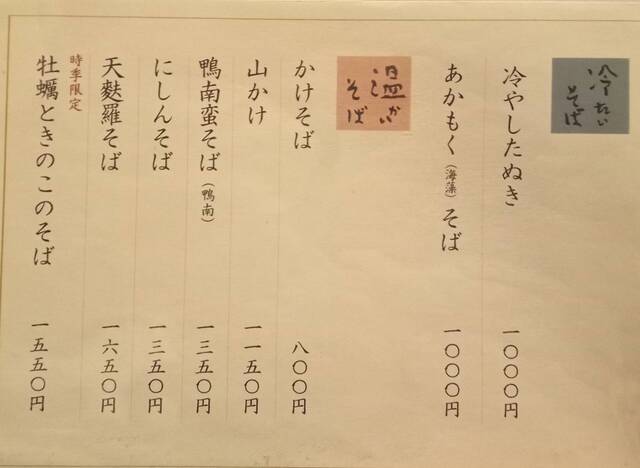 冷たい
そば
冷やしたぬき 一〇〇〇円
あかもく(海藻)そば 一〇〇〇円
温かい
そば
かけそば 八〇〇円
山かけ 一一五〇円
鴨南蛮そば(鴨南) 一三五〇円
にしんそば 一三五〇円
天麩羅そば 一六五〇円
時季限定
牡蠣ときのこのそば 一五五〇円